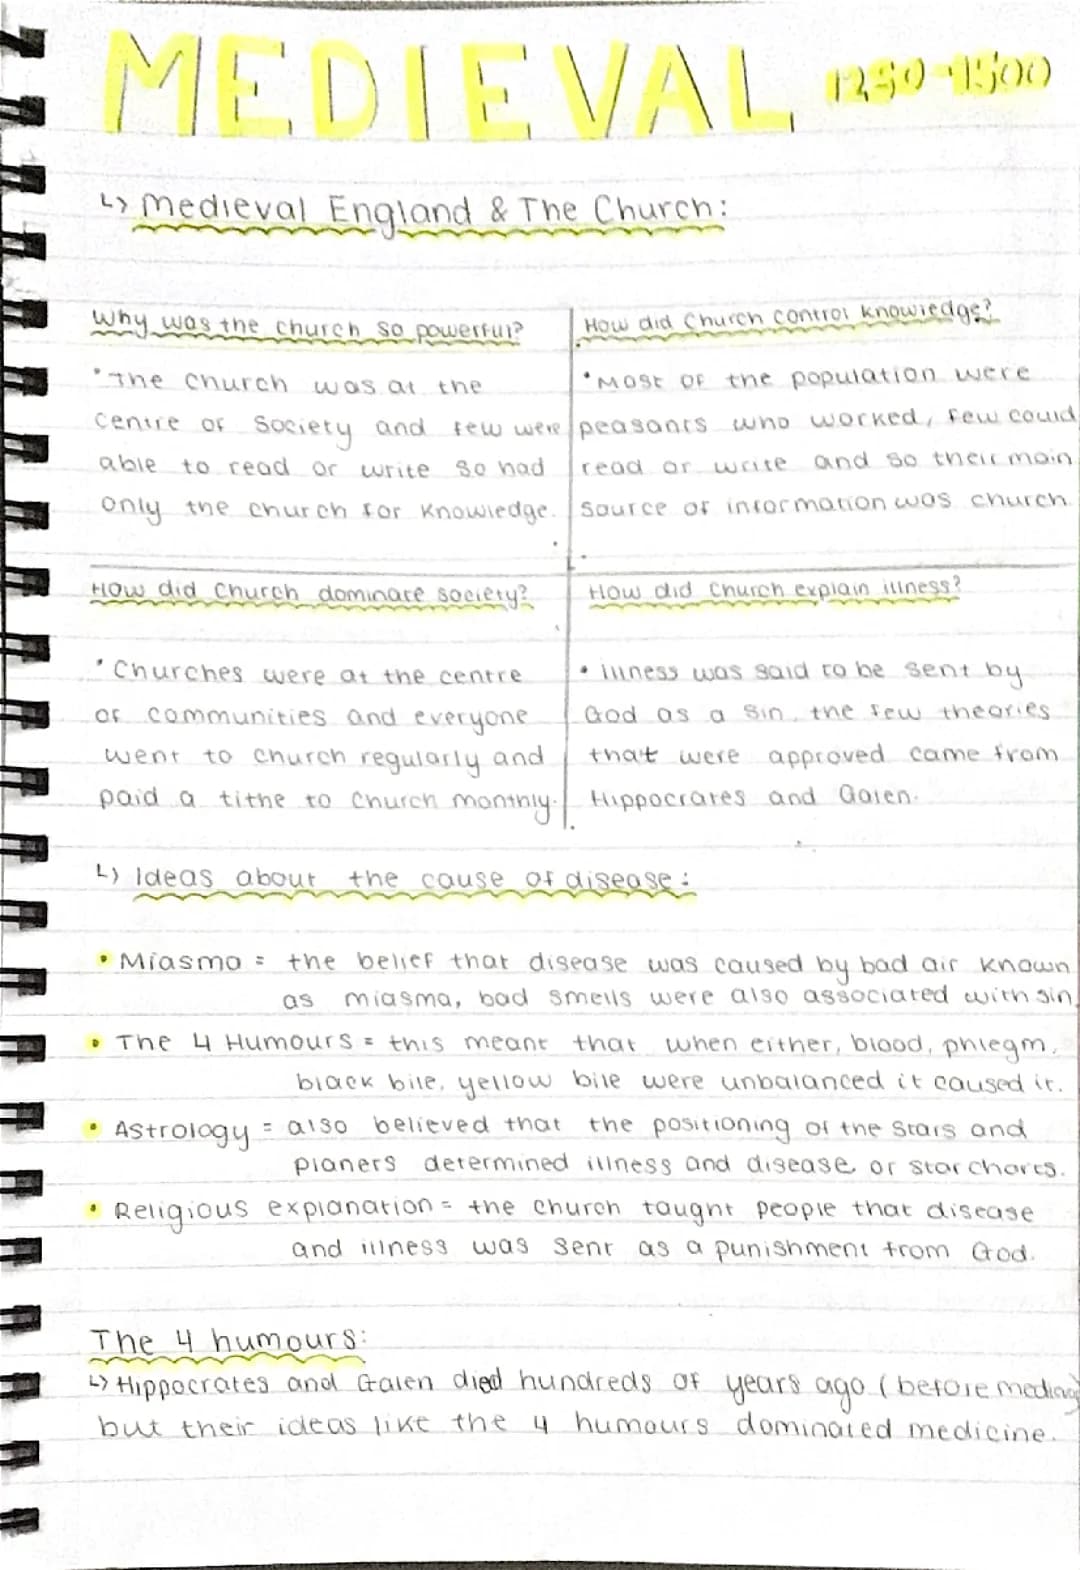 MEDIEVAL 1250-1500
↳ Medieval England & The Church:
Why was the church so powerful?
• The church was at the
centre of society and few were
able to read or write so had
only the church for knowledge.
How did Church control knowledge?
• Most of the population were
peasants who worked, few could
read or write and so their main
source of information was church.
How did Church dominate society?
• Churches were at the centre
of communities and everyone
went to church regularly and
paid a tithe to church monthly.
How did Church explain illness?
• illness was said to be sent by
God as a sin, the few theories
that were approved came from
Hippocrates and Galen.
↳ Ideas about the cause of disease:
• Miasma = the belief that disease was caused by bad air known
as miasma, bad smells were also associated with sin.
• The 4 Humours = this meant that when either, blood, phlegm,
black bile, yellow bile were unbalanced it caused it.
• Astrology = also believed that the positioning of the stars and
planets determined illness and disease or star charts.
• Religious explanation = the church taught people that disease
and illness was sent as a punishment from God.
The 4 humours:
↳ Hippocrates and Galen died hundreds of years ago (before
but their ideas like the 4 humours dominated medicine.